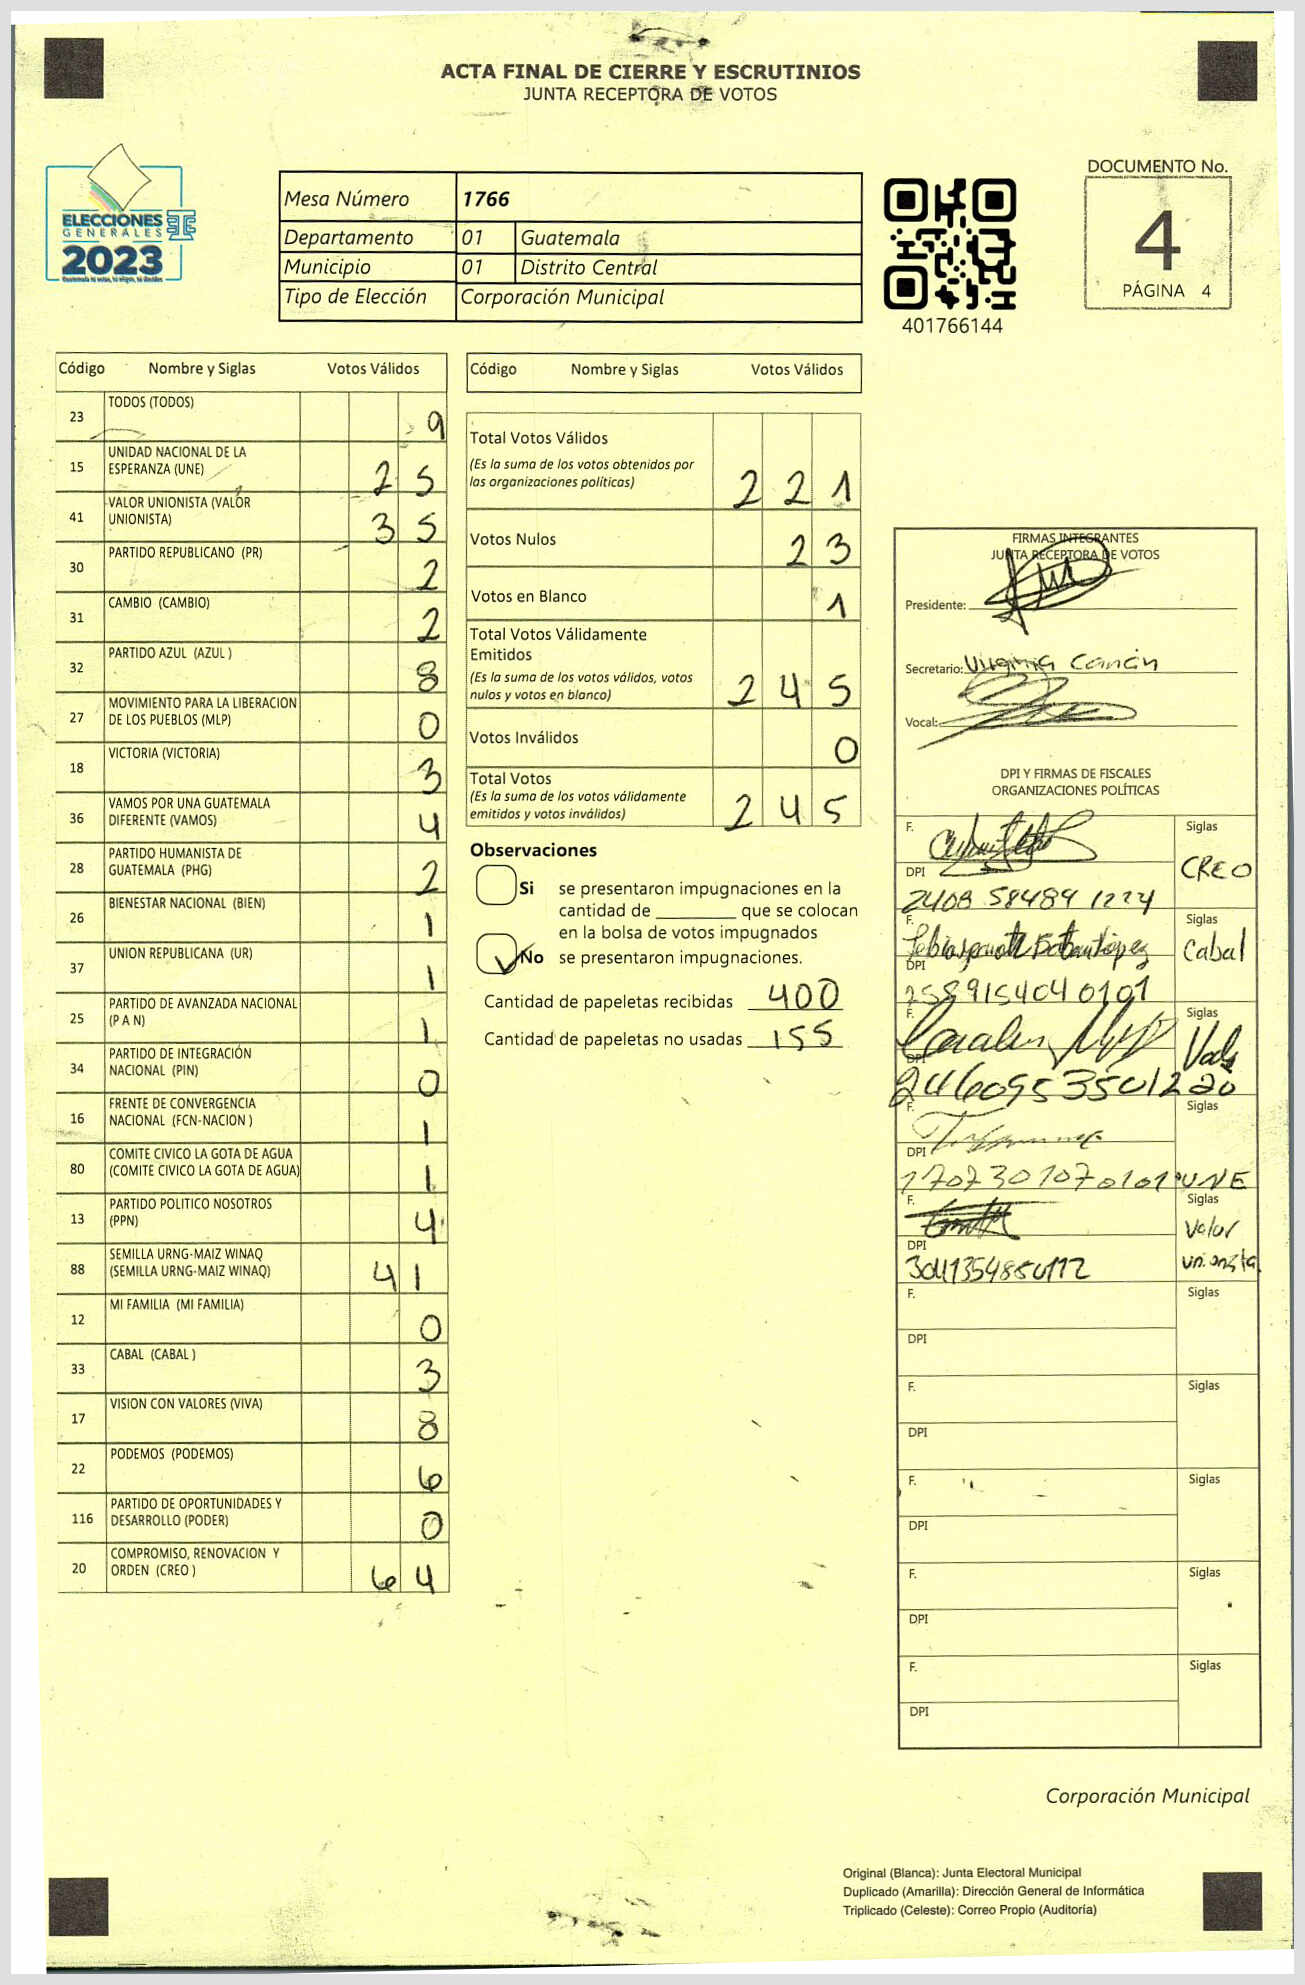 ACTA FINAL DE CIERRE Y ESCRUTINIOS
JUNTA RECEPTORA DE VOTOS
ELECCIONES
GENERALES
2023
Mesa Número 1766
Departamento 01 Guatemala
Municipio 01 Distrito Central
Tipo de Elección Corporación Municipal
401766144
DOCUMENTO No.
4
PÁGINA 4
Código Nombre y Siglas Votos Válidos
23 TODOS (TODOS) 9
15 UNIDAD NACIONAL DE LA
ESPERANZA (UNE) 25
41 VALOR UNIONISTA (VALOR
UNIONISTA) 35
30 PARTIDO REPUBLICANO (PR) 2
31 CAMBIO (CAMBIO) 2
32 PARTIDO AZUL (AZUL ) 8
27 MOVIMIENTO PARA LA LIBERACION
DE LOS PUEBLOS (MLP) 0
18 VICTORIA (VICTORIA) 3
36 VAMOS POR UNA GUATEMALA
DIFERENTE (VAMOS) 4
28 PARTIDO HUMANISTA DE
GUATEMALA (PHG) 2
26 BIENESTAR NACIONAL (BIEN) 1
37 UNION REPUBLICANA (UR) 1
25 PARTIDO DE AVANZADA NACIONAL
(P A N) 1
34 PARTIDO DE INTEGRACIÓN
NACIONAL (PIN) 0
16 FRENTE DE CONVERGENCIA
NACIONAL (FCN-NACION ) 1
80 COMITE CIVICO LA GOTA DE AGUA
(COMITE CIVICO LA GOTA DE AGUA) 1
13 PARTIDO POLITICO NOSOTROS
(PPN) 4
88 SEMILLA URNG-MAIZ WINAQ
(SEMILLA URNG-MAIZ WINAQ) 41
12 MI FAMILIA (MI FAMILIA) 0
33 CABAL (CABAL ) 3
17 VISION CON VALORES (VIVA) 8
22 PODEMOS (PODEMOS) 6
116 PARTIDO DE OPORTUNIDADES Y
DESARROLLO (PODER) 0
20 COMPROMISO, RENOVACION Y
ORDEN (CREO ) 64
Código Nombre y Siglas Votos Válidos
Total Votos Válidos
(Es la suma de los votos obtenidos por
las organizaciones políticas) 221
Votos Nulos 23
Votos en Blanco 1
Total Votos Válidamente
Emitidos
(Es la suma de los votos válidos, votos
nulos y votos en blanco) 245
Votos Inválidos 0
Total Votos
(Es la suma de los votos válidamente
emitidos y votos inválidos) 245
Observaciones
Si se presentaron impugnaciones en la
cantidad de ________ que se colocan
en la bolsa de votos impugnados
No se presentaron impugnaciones.
Cantidad de papeletas recibidas 400
Cantidad de papeletas no usadas 155
FIRMAS INTEGRANTES
JUNTA RECEPTORA DE VOTOS
Presidente:
Secretario: Virginia
Vocal:
DPI Y FIRMAS DE FISCALES
ORGANIZACIONES POLÍTICAS
F. Siglas
DPI CREO
2408 58489 1224
F. Siglas
DPI Cabal
2589154040101
F. Siglas
DPI
2460953501220
F. Siglas
DPI
1707301070101 UNE
F. Siglas
Valor
DPI unionista
F. Siglas
DPI
F. Siglas
DPI
F. Siglas
DPI
F. Siglas
DPI
F. Siglas
DPI
Corporación Municipal
Original (Blanca): Junta Electoral Municipal
Duplicado (Amarilla): Dirección General de Informática
Triplicado (Celeste): Correo Propio (Auditoría)